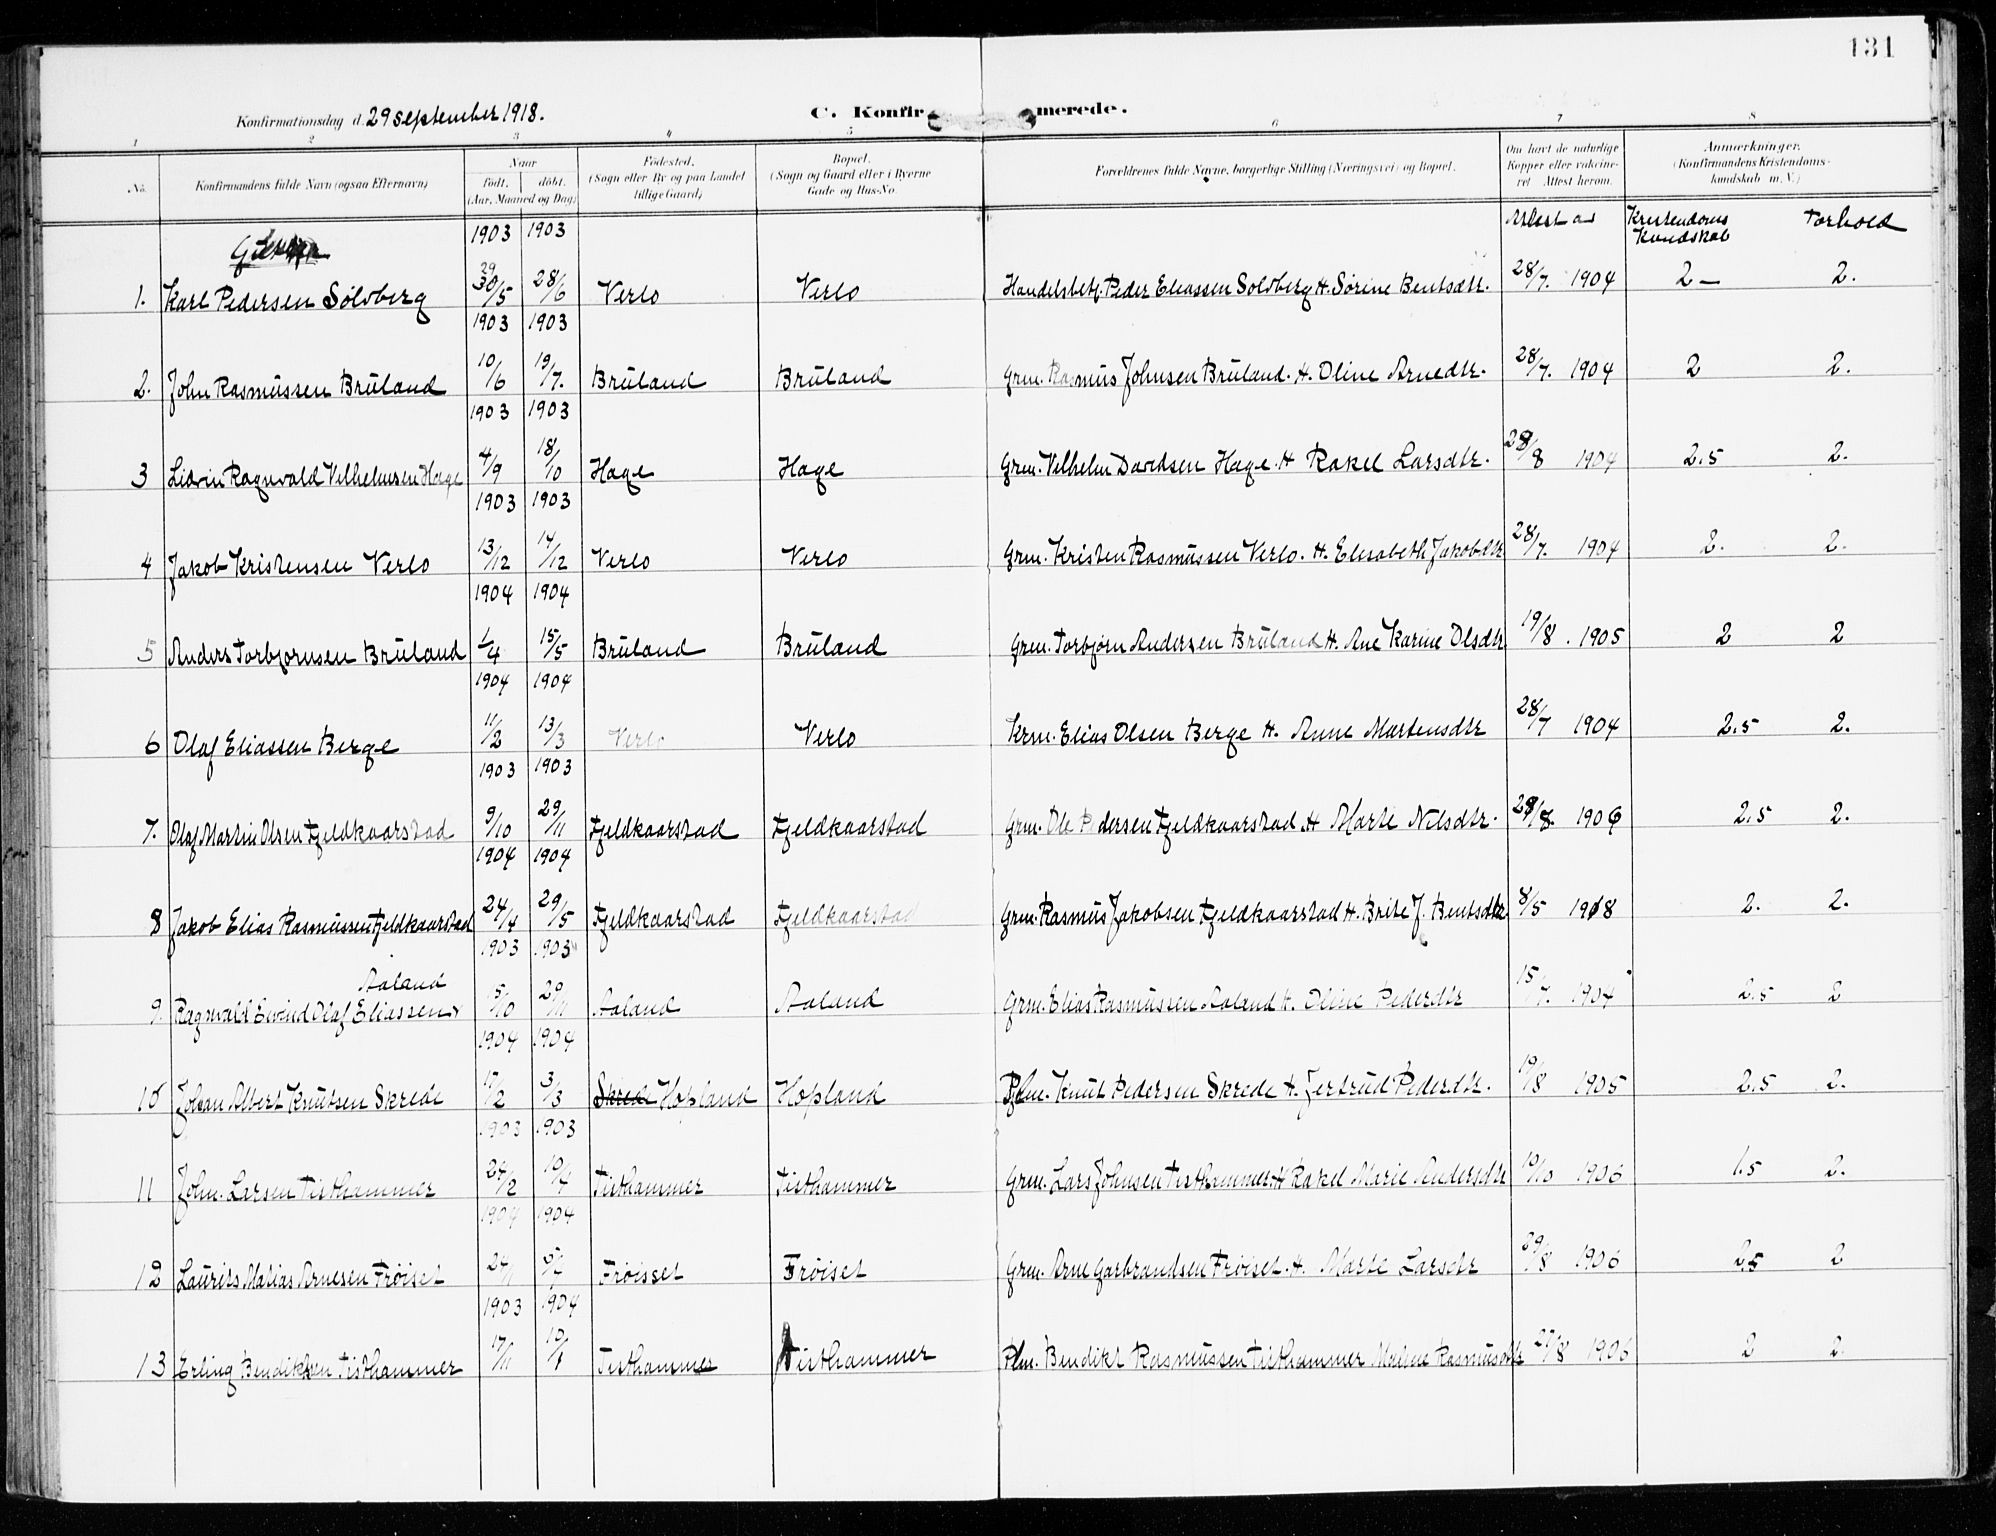 131
Konfirmationsdag d. 29 september 1918.
C. Konfirmerede.
1 2 3 4 5 6 7 8
No.
Konfirmandens fulde Navn (ogsaa Efternavn)
Naar
födt. döbt.
(Aar, Maaned og Dag)
Födested.
(Sogn eller By og paa Landet
tillige Gaard)
Bopæl.
(Sogn og Gaard eller i Byerne
Gade og Hus-No.
Forældrenes fulde Navne, borgerlige Stilling (Næringsvei) og Bopæl.
Om havt de naturlige
Kopper eller vaksine-
ret Attest herom.
Anmærkninger.
(Konfirmandens Kristendoms-
kundskab m. V.)
Gutter
1903 1903
Attest av
Kristendoms Kundskab
Forhold
1. Karl Pedersen Sölvberg 29/5 28/6 Verlo Verlo Handelsbetj. Peder Eliassen Solvberg H. Sörine Bentsdtr. 28/7. 1904 2– 2.
1903 1903
2. John Rasmussen Bruland 10/6 19/7. Bruland Bruland Grm. Rasmus Johnsen Bruland. H. Oline Arnedtr. 28/7. 1904 2 2.
1903 1903
3 Lidvin Ragnvald Vilhelmsen Hage 4/9 18/10 Hage Hage Grm. Vilhelm Davidsen Hage. H Rakel Larsdtr. 28/8 1904 2.5 2.
1903 1903
4 Jakob Kristensen Verlo 13/12 14/12 Verlo Verlo Grm. Kristen Rasmussen Verlo. H. Elisabeth Jakobdtr 28/7. 1904 2. 2.
1904 1904
5 Anders Torbjornsen Bruland 1/4 15/5 Bruland Bruland Grm. Torbjörn Andersen Bruland H. Ane Karine Olsdtr 19/8. 1905 2 2
1904 1904
6 Olaf Eliassen Berge 11/2 13/3 Verlo Verlo Krm. Elias Olsen Berge H. Anne Martensdtr 28/7 1904 2.5 2.
1903 1903
7. Olaf Martin Olsen Fjeldkaarstad 9/10 29/11 Fjeldkaarstad Fjeldkaarstad Grm. Ole Pedersen Fjeldkaarstad. H Marte Nilsdtr. 29/8. 1906 2.5 2.
1904 1904
8 Jakob Elias Rasmussen Fjeldkaarstad 24/4 29/5 Fjeldkaarstad Fjeldkaarstad Grm. Rasmus Jakobsen Fjeldkaarstad H. Brite J. Bentsdtr 8/5 1918 2. 2.
1903 1903
Aaland
9. Ragnvald Eivind Olaf Eliassen 15/10 29/11 Aaland Aaland Grm. Elias Rasmussen Aaland H. Oline Pedersdtr 15/7. 1904 2.5 2
1904 1904
10 Johan Albert Knutsen Skrede 17/2 3/3 Skrede Hopland Hopland Knut Pedersen Skrede H. Jertrud Pederdtr. 19/8 1905 2.5 2.
1903 1903
11 John. Larsen Tisthammer 24/2 19/4 Tisthammer Tisthammer Grm. Lars Johnsen Tisthammer H Rakel Marie Andersdtr 19/10 1906 1.5 2.
1904 1904
12 Laurits Matias Arnesen Fröiset Fröisset Fröiset Grm. Arne Garbrandsen Fröiset. H. Marte Larsdtr 29/8 1906 2.5 2
1903 1904
13 Erling Bendiktsen Tisthammer 17/11 Tisthammer Tisthammer Plm. Bendikt Rasmussen Tisthammer Maline Rasmusdtr 27/8 1906 2 2.